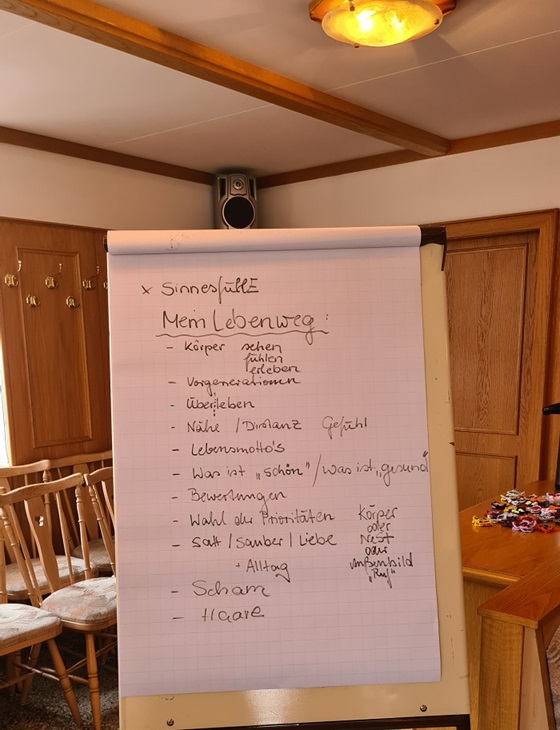 x SinnesfüllE
Mein Lebenweg:
- Körper sehen
fühlen
erleben
- Vorgenerationen
- Über¦leben
- Nähe / Distanz Gefühl
- Lebensmotto's
- Was ist „schön" / was ist „gesund"
- Bewertungen
- Wahl der Prioritäten Körper
oder
- Satt / Sauber / Liebe Nest
oder
+ Alltag Außenbild
„Ruf"
- Scham
- Haare